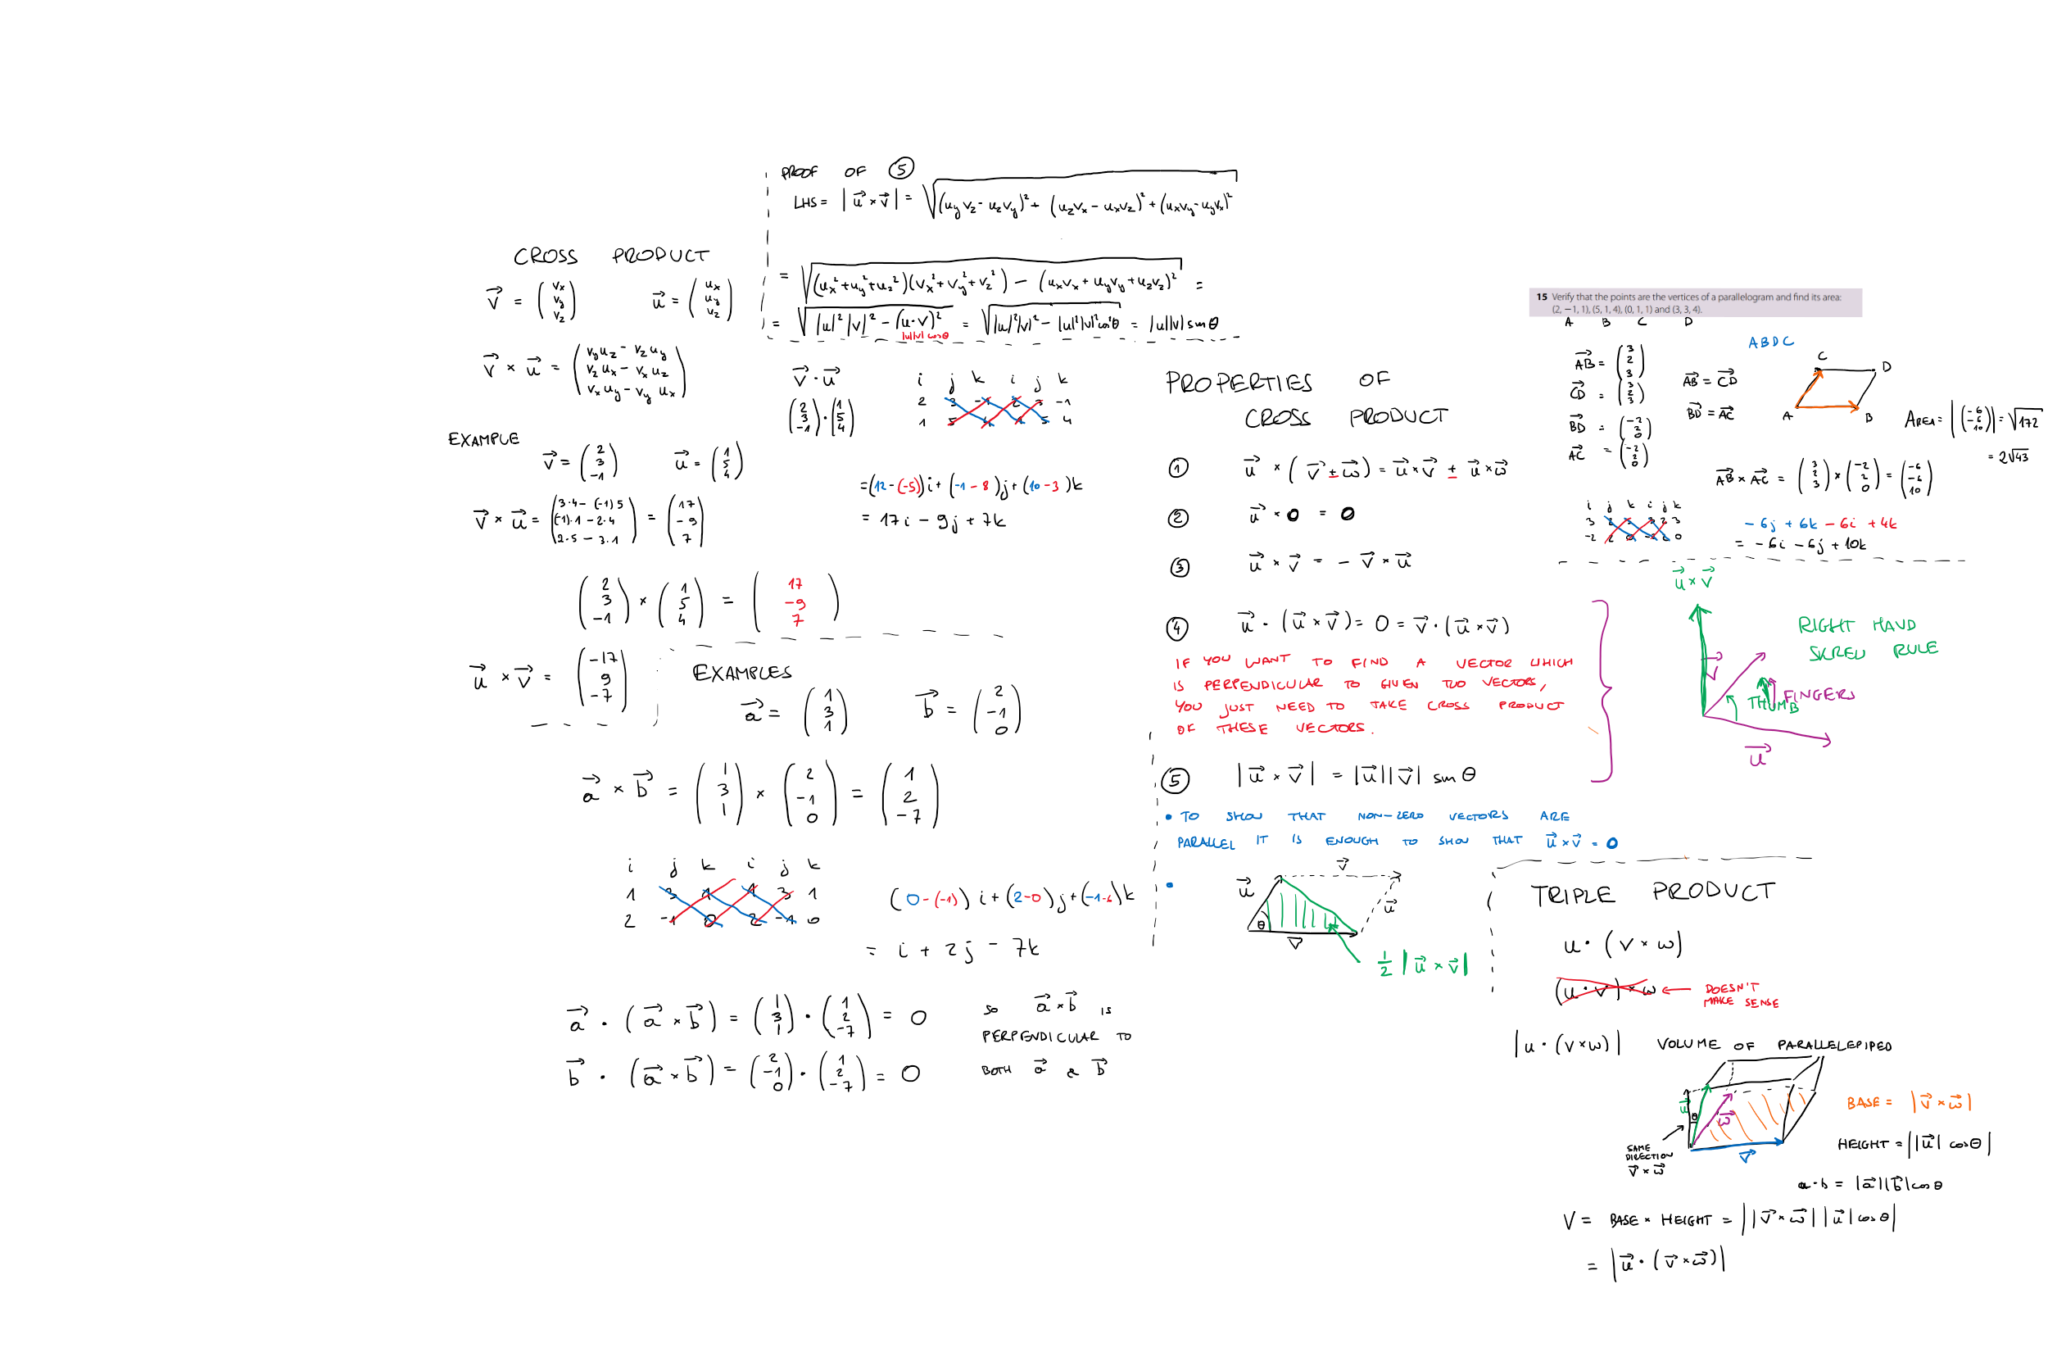 CROSS PRODUCT
v⃗ = (vx vy vz) u⃗ = (ux uy vz)
v⃗ × u⃗ = (vyuz - vzuy vzux - vxuz vxuy - vyux)
EXAMPLE
v⃗ = (2 3 -1) u⃗ = (1 5 4)
v⃗ × u⃗ = (3·4 - (-1)5 (-1)·1 - 2·4 2·5 - 3·1) = (17 -9 7)
(2 3 -1) × (1 5 4) = (17 -9 7)
u⃗ × v⃗ = (-17 9 -7)
PROOF OF ⑤
LHS = |u⃗ × v⃗| = √((uyvz - uzvy)² + (uzvx - uxvz)² + (uxvy - uyvx)²
= √((ux² + uy² + uz²)(vx² + vy² + vz²) - (uxvx + uyvy + uzvz)²) =
= √(|u|²|v|² - (u·v)²) = √(|u|²|v|² - |u|²|v|²cos²θ) = |u||v| sinθ
|u||v| cosθ
v⃗ · u⃗
(2 3 -1) · (1 5 4)
i j k i j k
2 3 -1 2 3 -1
1 5 4 1 5 4
= (12 - (-5))i + (-1 - 8)j + (10 - 3)k
= 17i - 9j + 7k
EXAMPLES
a⃗ = (1 3 1) b⃗ = (2 -1 0)
a⃗ × b⃗ = (1 3 1) × (2 -1 0) = (1 2 -7)
i j k i j k
1 3 1 1 3 1
2 -1 0 2 -1 0
(0 - (-1)) i + (2 - 0)j + (-1 - 6)k
= i + 2j - 7k
a⃗ · (a⃗ × b⃗) = (1 3 1) · (1 2 -7) = 0
b⃗ · (a⃗ × b⃗) = (2 -1 0) · (1 2 -7) = 0
SO a⃗ × b⃗ IS
PERPENDICULAR TO
BOTH a⃗ & b⃗
PROPERTIES OF
CROSS PRODUCT
① u⃗ × (v⃗ ± w⃗) = u⃗ × v⃗ ± u⃗ × w⃗
② u⃗ × 0 = 0
③ u⃗ × v⃗ = - v⃗ × u⃗
④ u⃗ · (u⃗ × v⃗) = 0 = v⃗ · (u⃗ × v⃗)
IF YOU WANT TO FIND A VECTOR WHICH
IS PERPENDICULAR TO GIVEN TWO VECTORS,
YOU JUST NEED TO TAKE CROSS PRODUCT
OF THESE VECTORS.
⑤ |u⃗ × v⃗| = |u⃗||v⃗| sin θ
• TO SHOW THAT NON-ZERO VECTORS ARE
PARALLEL IT IS ENOUGH TO SHOW THAT u⃗ × v⃗ = 0
•
v⃗
u⃗
u⃗
θ
v⃗
1/2 |u⃗ × v⃗|
15 Verify that the points are the vertices of a parallelogram and find its area:
(2, −1, 1), (5, 1, 4), (0, 1, 1) and (3, 3, 4).
A B C D
AB⃗ = (3 2 3)
CD⃗ = (3 2 3)
BD⃗ = (-2 2 0)
AC⃗ = (-2 2 0)
AB⃗ = CD⃗
BD⃗ = AC⃗
ABDC
C D
A B
AREA = |(-6 -6 10)| = √172
= 2√43
AB⃗ × AC⃗ = (3 2 3) × (-2 2 0) = (-6 -6 10)
i j k i j k
3 2 3 3 2 3
-2 2 0 -2 2 0
- 6j + 6k - 6i + 4k
= - 6i - 6j + 10k
u⃗ × v⃗
v⃗
u⃗
RIGHT HAND
SKREW RULE
THUMB
FINGERS
TRIPLE PRODUCT
u · (v × w)
(u · v) × w ← DOESN'T
MAKE SENSE
|u · (v×w)| VOLUME OF PARALLELEPIPED
u⃗
θ
w⃗
v⃗
SAME
DIRECTION
v⃗ × w⃗
BASE = |v⃗ × w⃗|
HEIGHT = ||u⃗| cosθ|
a·b = |a⃗||b⃗|cosθ
V = BASE × HEIGHT = ||v⃗ × w⃗||u⃗|cosθ|
= |u⃗ · (v⃗ × w⃗)|